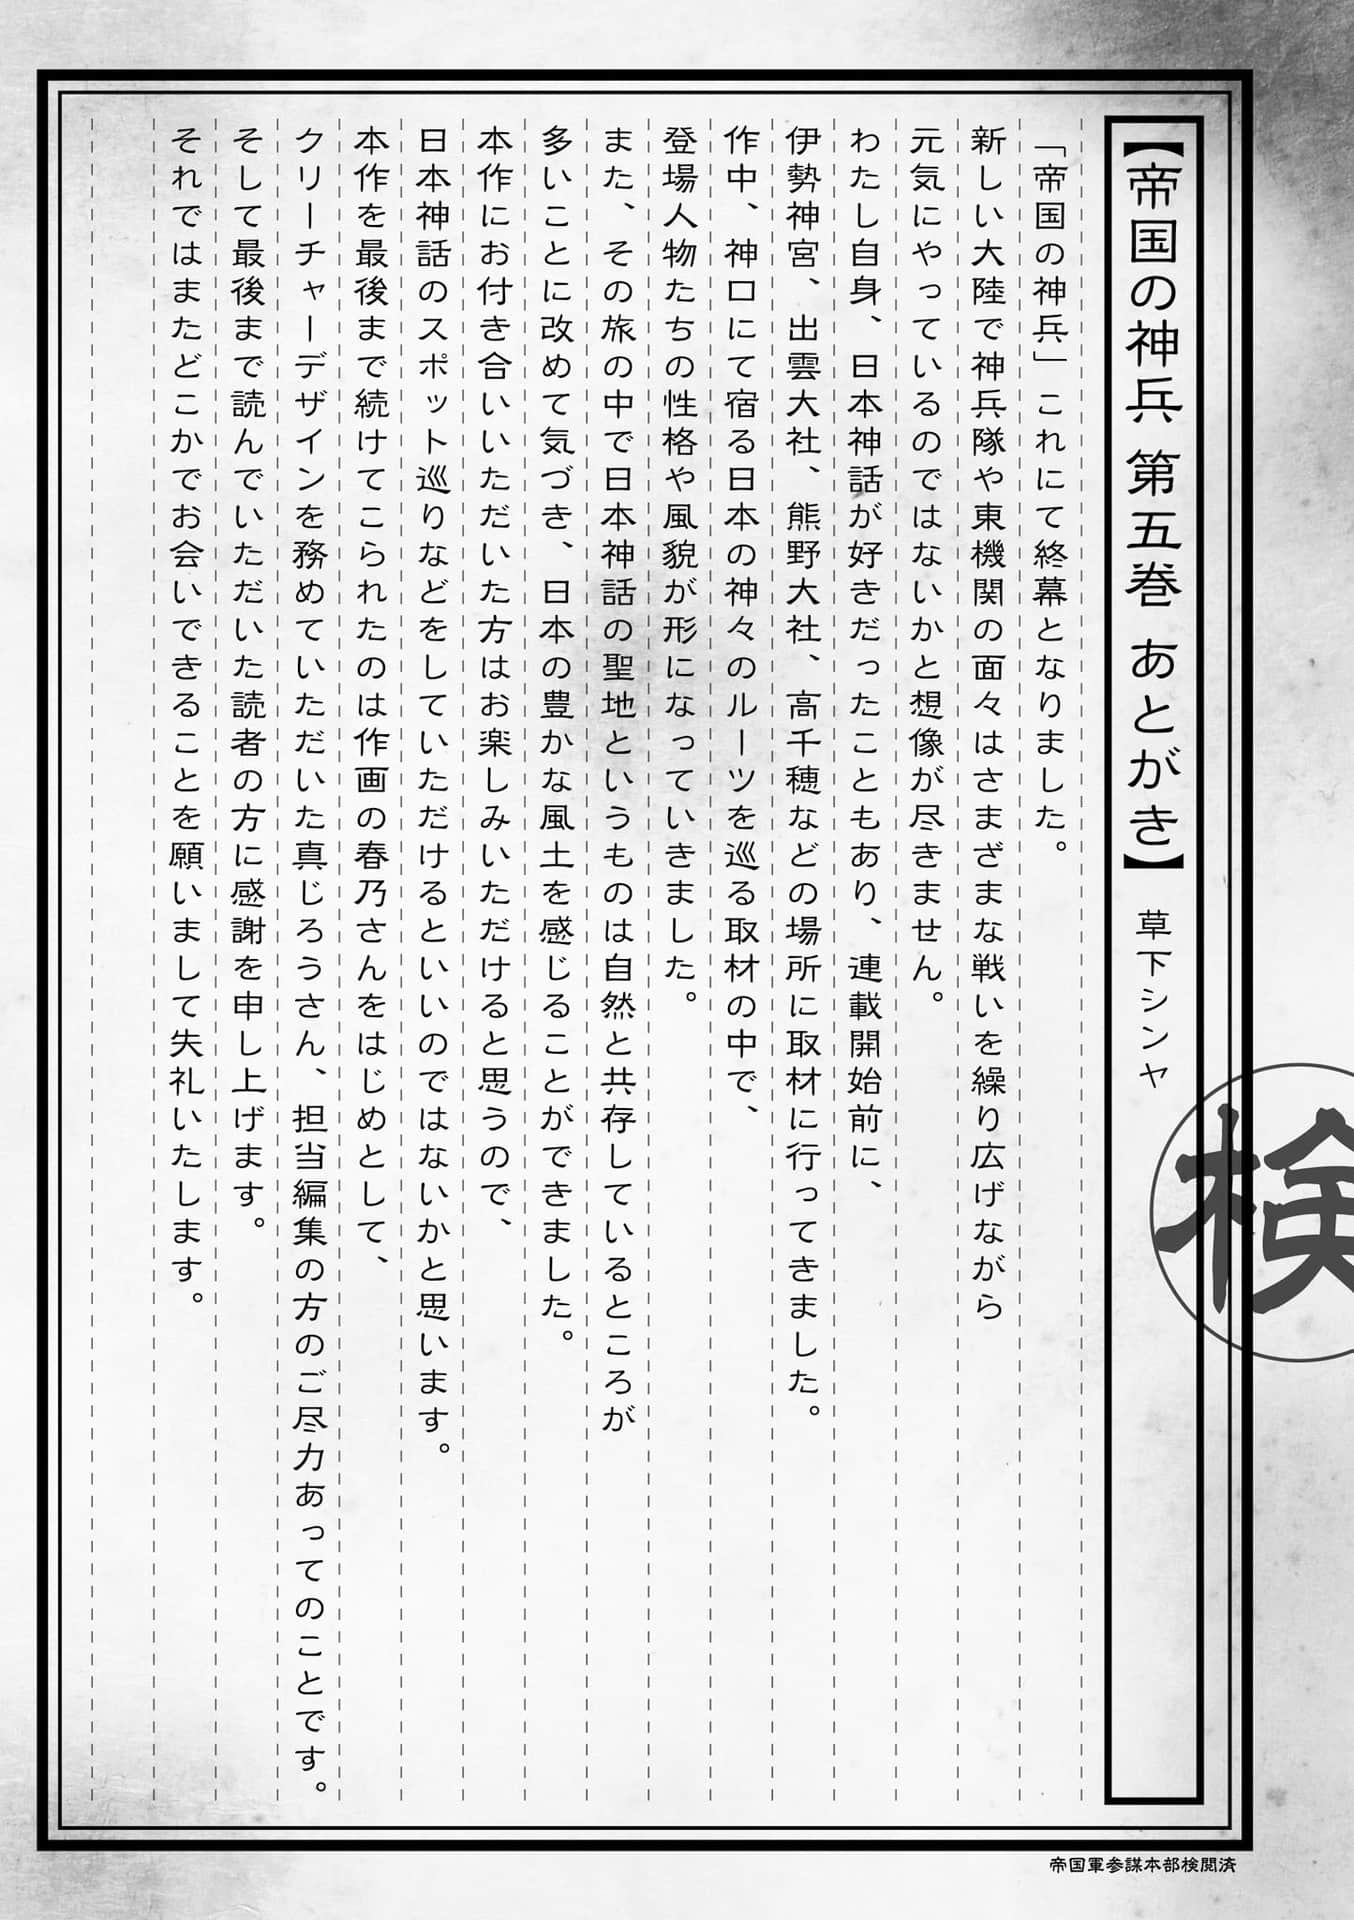 【帝国の神兵 第五巻 あとがき】 草下シンヤ
「帝国の神兵」これにて終幕となりました。
新しい大陸で神兵隊や東機関の面々はさまざまな戦いを繰り広げながら
元気にやっているのではないかと想像が尽きません。
わたし自身、日本神話が好きだったこともあり、連載開始前に、
伊勢神宮、出雲大社、熊野大社、高千穂などの場所に取材に行ってきました。
作中、神口にて宿る日本の神々のルーツを巡る取材の中で、
登場人物たちの性格や風貌が形になっていきました。
また、その旅の中で日本神話の聖地というものは自然と共存しているところが
多いことに改めて気づき、日本の豊かな風土を感じることができました。
本作にお付き合いいただいた方はお楽しみいただけると思うので、
日本神話のスポット巡りなどをしていただけるといいのではないかと思います。
本作を最後まで続けてこられたのは作画の春乃さんをはじめとして、
クリーチャーデザインを務めていただいた真じろうさん、担当編集の方のご尽力あってのことです。
そして最後まで読んでいただいた読者の方に感謝を申し上げます。
それではまたどこかでお会いできることを願いまして失礼いたします。
検
帝国軍参謀本部検閲済